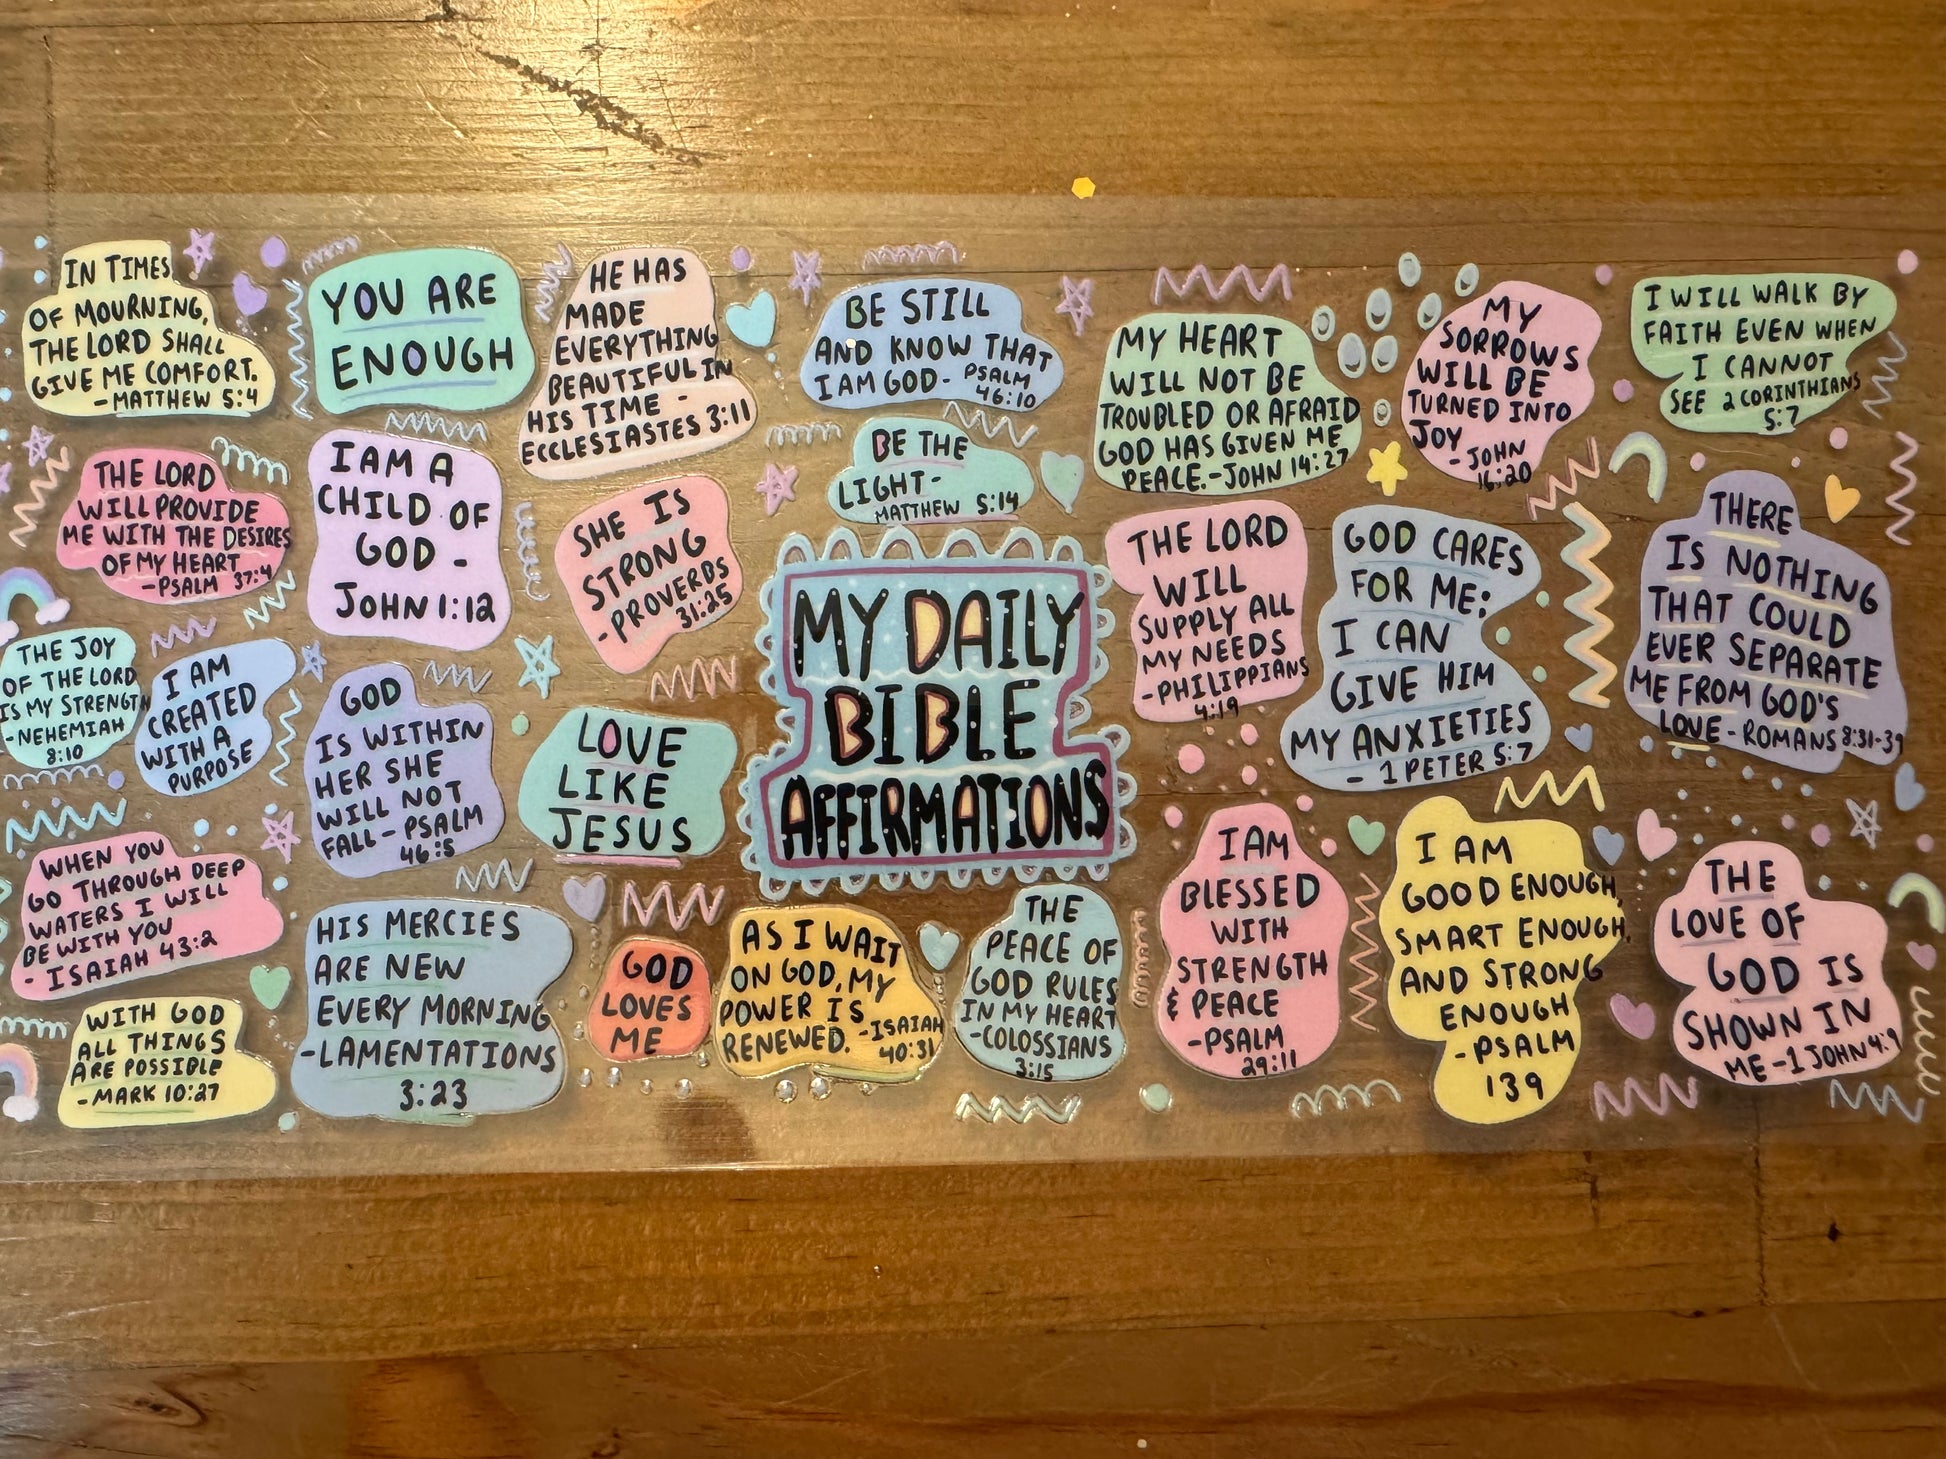 IN TIMES
OF MOURNING,
THE LORD SHALL
GIVE ME COMFORT.
- MATTHEW 5:4
YOU ARE
ENOUGH
HE HAS
MADE
EVERYTHING
BEAUTIFUL IN
HIS TIME -
ECCLESIASTES 3:11
BE STILL
AND KNOW THAT
I AM GOD - PSALM
46:10
MY HEART
WILL NOT BE
TROUBLED OR AFRAID
GOD HAS GIVEN ME
PEACE. - JOHN 14:27
MY
SORROWS
WILL BE
TURNED INTO
JOY
- JOHN
16:20
I WILL WALK BY
FAITH EVEN WHEN
I CANNOT
SEE 2 CORINTHIANS
5:7
THE LORD
WILL PROVIDE
ME WITH THE DESIRES
OF MY HEART
- PSALM 37:4
I AM A
CHILD OF
GOD -
JOHN 1:12
SHE IS
STRONG
- PROVERBS
31:25
BE THE
LIGHT -
MATTHEW 5:14
THE LORD
WILL
SUPPLY ALL
MY NEEDS
- PHILIPPIANS
4:19
GOD CARES
FOR ME:
I CAN
GIVE HIM
MY ANXIETIES
- 1 PETER 5:7
THERE
IS NOTHING
THAT COULD
EVER SEPARATE
ME FROM GOD'S
LOVE - ROMANS 8:31-39
THE JOY
OF THE LORD
IS MY STRENGTH
- NEHEMIAH
8:10
I AM
CREATED
WITH A
PURPOSE
GOD
IS WITHIN
HER SHE
WILL NOT
FALL - PSALM
46:5
LOVE
LIKE
JESUS
MY DAILY
BIBLE
AFFIRMATIONS
WHEN YOU
GO THROUGH DEEP
WATERS I WILL
BE WITH YOU
- ISAIAH 43:2
HIS MERCIES
ARE NEW
EVERY MORNING
- LAMENTATIONS
3:23
GOD
LOVES
ME
AS I WAIT
ON GOD, MY
POWER IS
RENEWED. - ISAIAH
40:31
THE
PEACE OF
GOD RULES
IN MY HEART
- COLOSSIANS
3:15
I AM
BLESSED
WITH
STRENGTH
& PEACE
- PSALM
29:11
I AM
GOOD ENOUGH,
SMART ENOUGH,
AND STRONG
ENOUGH
- PSALM
139
THE
LOVE OF
GOD IS
SHOWN IN
ME - 1 JOHN 4:9
WITH GOD
ALL THINGS
ARE POSSIBLE
- MARK 10:27